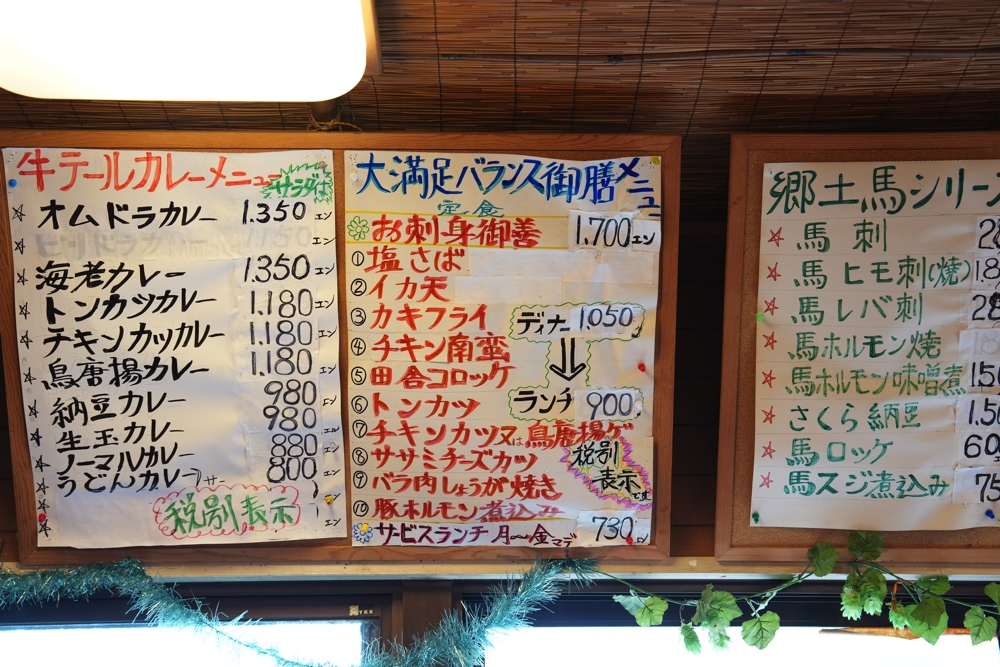 牛テールカレーメニュー
オムドラカレー 1.350 エン
エン
海老カレー 1.350 エン
トンカツカレー 1.180 エン
チキンカツカレー 1.180 エン
鳥唐揚カレー 1.180 エン
納豆カレー 980
生玉カレー 980
ノーマルカレー 880
うどんカレー 800
税別表示
エン
大満足バランス御膳メニュー
定食
お刺身御善 1,700エン
①塩さば
②イカ天
③カキフライ
ディナー 1.050
④チキン南蛮
⑤田舎コロッケ
ランチ 900
⑥トンカツ
⑦チキンカツ又は鳥唐揚ゲ
⑧ササミチーズカツ
⑨バラ肉しょうが焼き
⑩豚ホルモン煮込み
税別表示です
サービスランチ 月〜金マデ 730エン
郷土馬シリー
馬刺
馬ヒモ刺(焼)
馬レバ刺
馬ホルモン焼
馬ホルモン味噌煮
さくら納豆
馬ロッケ
馬スジ煮込み
YKK